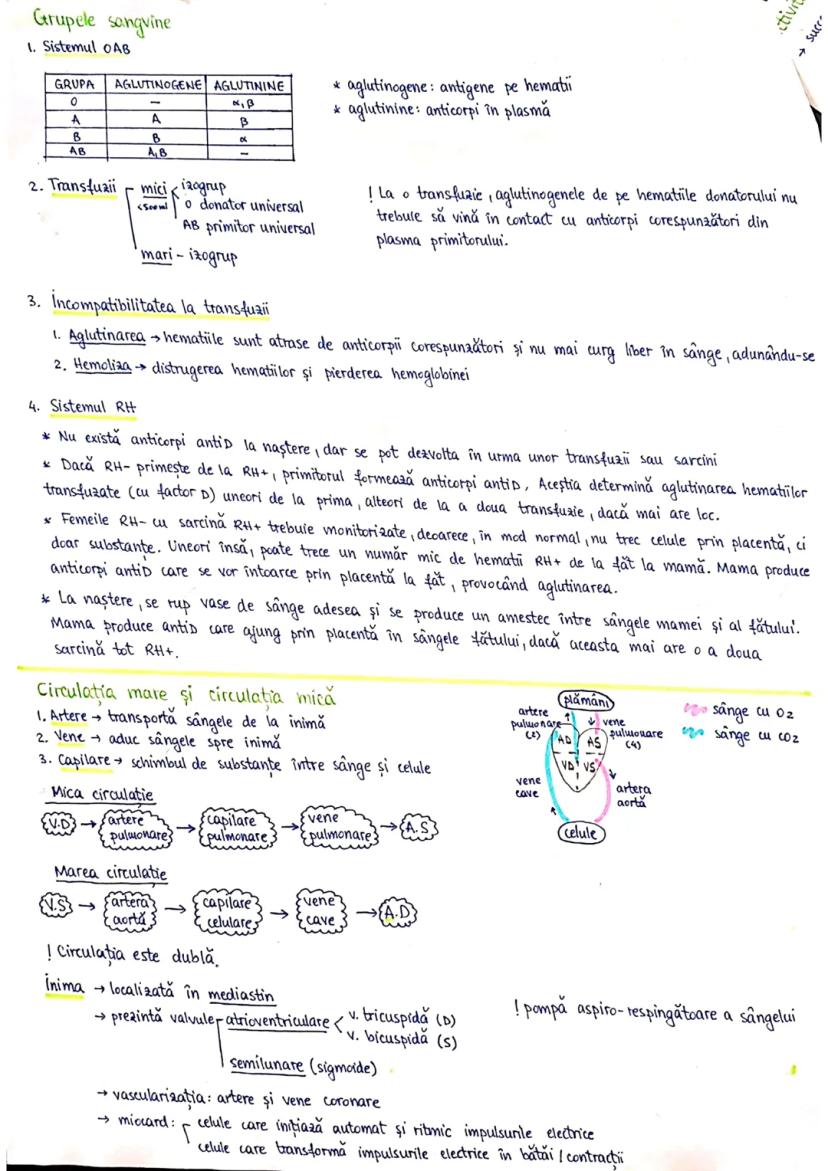 Grupele sangvine
1. Sistemul OAB
GRUPA AGLUTINOGENE AGLUTININE
O — α, β
A A β
B B α
AB A, B —
* aglutinogene: antigene pe hematii
* aglutinine: anticorpi în plasmă
2. Transfuzii
mici
<500ml
izogrup
O donator universal
AB primitor universal
mari - izogrup
! La o transfuzie, aglutinogenele de pe hematiile donatorului nu
trebuie să vină în contact cu anticorpi corespunzători din
plasma primitorului.
3. Incompatibilitatea la transfuzii
1. Aglutinarea → hematiile sunt atrase de anticorpii corespunzători și nu mai curg liber în sânge, adunându-se
2. Hemoliza → distrugerea hematiilor și pierderea hemoglobinei
4. Sistemul RH
* Nu există anticorpi antiD la naștere, dar se pot dezvolta în urma unor transfuzii sau sarcini
* Dacă RH- primește de la RH+, primitorul formează anticorpi antiD. Aceștia determină aglutinarea hematiilor
transfuzate (cu factor D) uneori de la prima, alteori de la a doua transfuzie, dacă mai are loc.
* Femeile RH- cu sarcină RH+ trebuie monitorizate, deoarece, în mod normal, nu trec celule prin placentă, ci
doar substanțe. Uneori însă, poate trece un număr mic de hematii RH+ de la făt la mamă. Mama produce
anticorpi antiD care se vor întoarce prin placentă la făt, provocând aglutinarea.
* La naștere, se rup vase de sânge adesea și se produce un amestec între sângele mamei și al fătului.
Mama produce antiD care ajung prin placentă în sângele fătului, dacă aceasta mai are o a doua
sarcină tot RH+.
Circulația mare și circulația mică
1. Artere → transportă sângele de la inimă
2. Vene → aduc sângele spre inimă
3. Capilare → schimbul de substanțe între sânge și celule
plămâni
artere
pulmonare
(2)
vene
pulmonare
(4)
AD AS
VD VS
vene
cave
artera
aortă
celule
sânge cu O2
sânge cu CO2
Mica circulație
V.D → artere pulmonare → capilare pulmonare → vene pulmonare → A.S
Marea circulație
V.S → artera aortă → capilare celulare → vene cave → A.D
! Circulația este dublă.
Inima → localizată în mediastin
→ prezintă valvule
atrioventriculare
v. tricuspidă (D)
v. bicuspidă (S)
semilunare (sigmoide)
! pompă aspiro-respingătoare a sângelui
→ vascularizația: artere și vene coronare
→ miocard:
celule care inițiază automat și ritmic impulsurile electrice
celule care transformă impulsurile electrice în bătăi / contracții